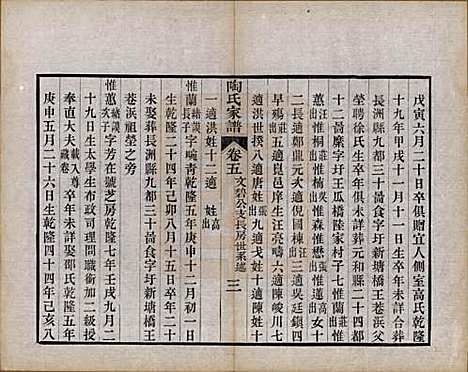 戊寅六月二十日卒俱贈宜人側室高氏乾隆
十九年甲戌十一月十一日生卒年未詳合葬
長洲縣九都三十啚食字圩新塘橋王巷浜父
塋聘徐氏生卒年未詳葬元和縣二十四都
十二啚糜字圩王瓜橋陸家村子七惟蘭莊出惟
蕙汪出惟桐莊出惟楠吳出惟森惟懋張出惟蓮高出女十
二長適鄭龍元次適倪國棟汪出三適吳廷鎮四
早殤莊出五適崑邑庠生汪亮疇六適陳峻川七
適洪世揆八適唐姓張出九適戈姓十適陳姓十
陶氏家譜 卷五 文程公支長房世系述 三
一適洪姓十二適 姓高出
惟蘭緒議長子字畹青乾隆十一年十二月初一日
生乾隆二十四年己卯八月十五日卒年十四
未娶葬長洲縣九都三十啚食字圩新塘橋王
巷浜祖塋之旁
惟蕙緒議次子字芳在號芝房乾隆七年壬戌九月二
十九日生太學生布政司理問職銜加二級授
奉直大夫載入尊藏卷卒年未詳娶邵氏乾隆五年
庚申五月二十六日生乾隆四十四年己亥八